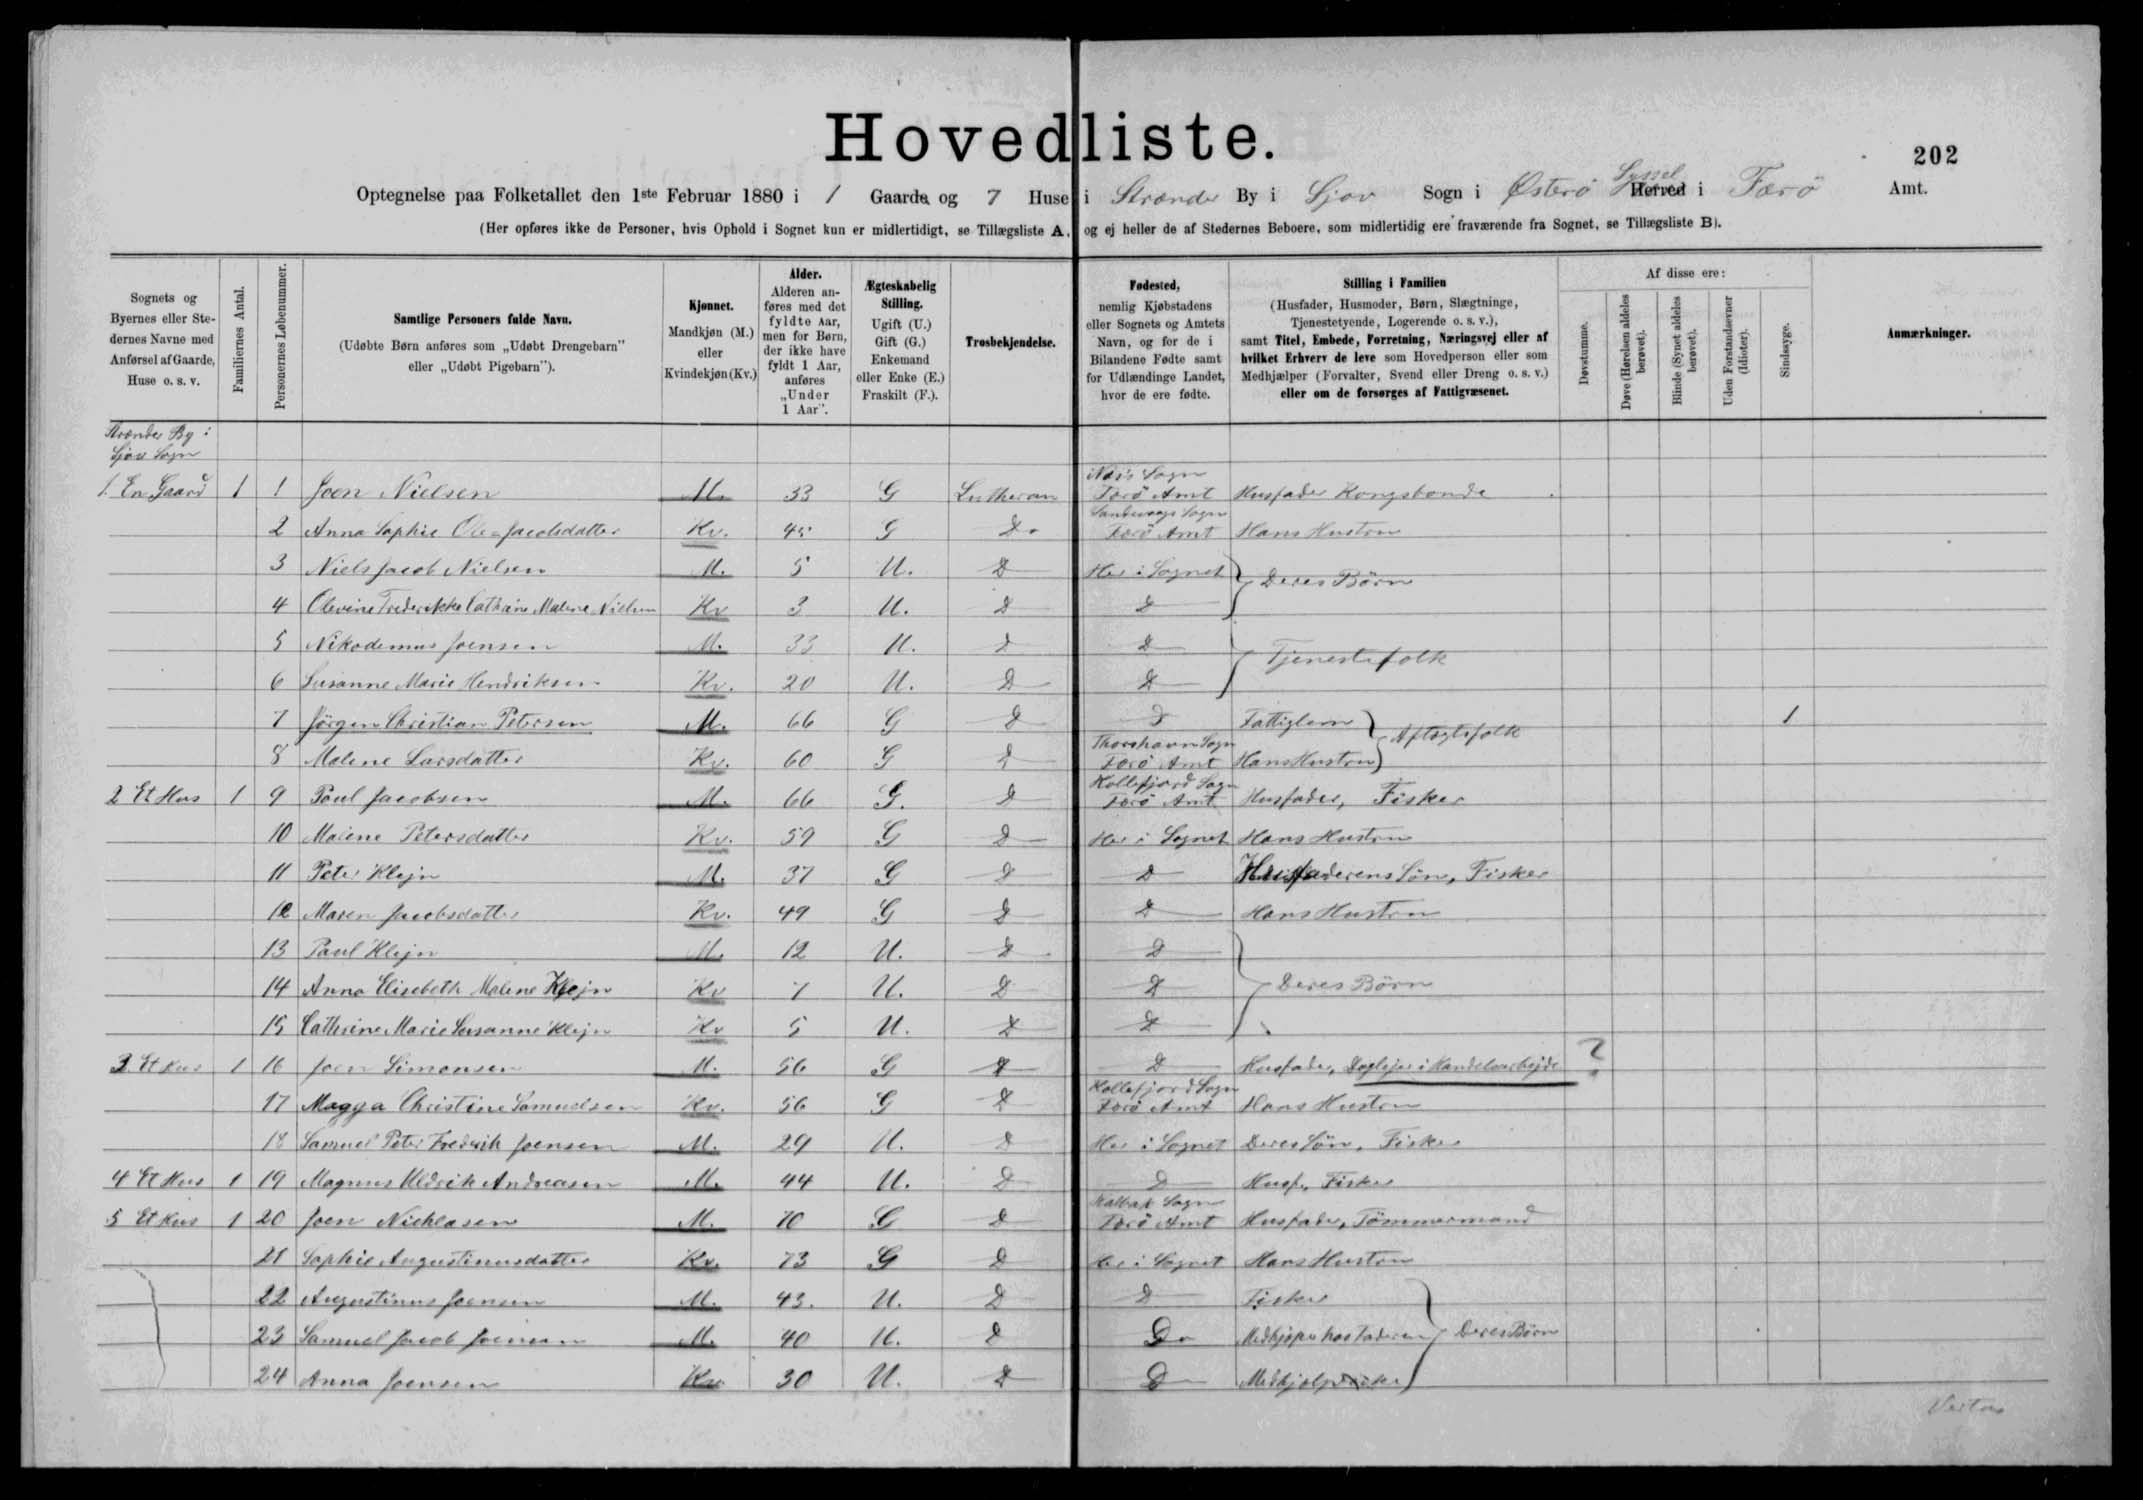 Hovedliste.
202
Optegnelse paa Folketallet den 1ste Februar 1880 i 1 Gaarde og 7 Huse i Strænder By i Sjov Sogn i Østerø Syssel Herred i Færø Amt.
(Her opføres ikke de Personer, hvis Ophold i Sognet kun er midlertidigt, se Tillægsliste A, og ej heller de af Stedernes Beboere, som midlertidig ere fraværende fra Sognet, se Tillægsliste B).
Sognets og Byernes eller Stedernes Navne med Anførsel af Gaarde, Huse o. s. v.
Familiernes Antal.
Personernes Løbenummer.
Samtlige Personers fulde Navn.
(Udøbte Børn anføres som „Udøbt Drengebarn" eller „Udøbt Pigebarn").
Kjønnet.
Mandkjøn (M.) eller Kvindekjøn (Kv.)
Alder.
Alderen anføres med det fyldte Aar, men for Børn, der ikke have fyldt 1 Aar, anføres „Under 1 Aar".
Ægteskabelig Stilling.
Ugift (U.) Gift (G.) Enkemand eller Enke (E.) Fraskilt (F.).
Trosbekjendelse.
Fødested,
nemlig Kjøbstadens eller Sognets og Amtets Navn, og for de i Bilandene Fødte samt for Udlændinge Landet, hvor de ere fødte.
Stilling i Familien
(Husfader, Husmoder, Børn, Slægtninge, Tjenestetyende, Logerende o. s. v.), samt Titel, Embede, Forretning, Næringsvej eller af hvilket Erhverv de leve som Hovedperson eller som Medhjælper (Forvalter, Svend eller Dreng o. s. v.) eller om de forsørges af Fattigvæsenet.
Af disse ere:
Døvstumme.
Døve (Hørelsen aldeles berøvet).
Blinde (Synet aldeles berøvet).
Uden Forstandsevner (Idioter).
Sindssyge.
Anmærkninger.
Strænder By i
Sjov Sogn
1. En Gaard 1 1 Joen Nielsen M. 33 G Lutheran Næs Sogn Færø Amt Husfader Kongsbonde
2 Anna Sophie Ole=Jacobsdatter Kv. 45 G Do Sandevaags Sogn Færø Amt Hans Hustru
3 Niels Jacob Nielsen M. 5 U. D Her i Sognet } Deres Børn
4 Olevine Frederikke Cathrine Malene Nielsen Kv 3 U. D D
5 Nikodemus Joensen M. 33 U. D D } Tjenestefolk
6 Susanne Marie Hendriksen Kv. 20 U. D D
7 Jörgen Christian Petersen M. 66 G D D Fattiglem } Aftægtsfolk 1
8 Malene Larsdatter Kv. 60 G D Thorshavn Sogn Færø Amt Hans Hustru
2 Et Hus 1 9 Poul Jacobsen M. 66 G. D Kollefjord Sogn Færø Amt Husfader, Fisker
10 Malene Petersdatter Kv. 59 G D Her i Sognet Hans Hustru
11 Peter Klejn M. 37 G D D Husfaderens Søn, Fisker
12 Maren Jacobsdatter Kv. 49 G D D Hans Hustru
13 Paul Klejn M. 12 U. D D } Deres Børn
14 Anna Elisebeth Malene Klejn Kv 7 U. D D
15 Cathrine Marie Susanne Klejn Kv 5 U. D D
3. Et Hus 1 16 Joen Simonsen M. 56 G D D Husfader, Daglejer i Handelsarbejde ?
17 Magga Christine Samuelsen Kv. 56 G D Kollefjord Sogn Færø Amt Hans Hustru
18 Samuel Peter Frederik Joensen M. 29 U. D Her i Sognet Deres Søn, Fisker
4 Et Hus 1 19 Magnus Uldrik Andreasen M. 44 U. D D Husf., Fisker
5 Et Hus 1 20 Joen Nichlasen M. 70 G D Kalbak Sogn Færø Amt Husfader, Tömmermand
21 Sophie Augustinusdatter Kv. 73 G D Her i Sognet Hans Hustru
22 Augustinus Joensen M. 43. U. D D Fisker } Deres Børn
23 Samuel Jacob Joensen M. 40 U. D Do Medhjelper hos Faderen
24 Anna Joensen Kv. 30 U. D D